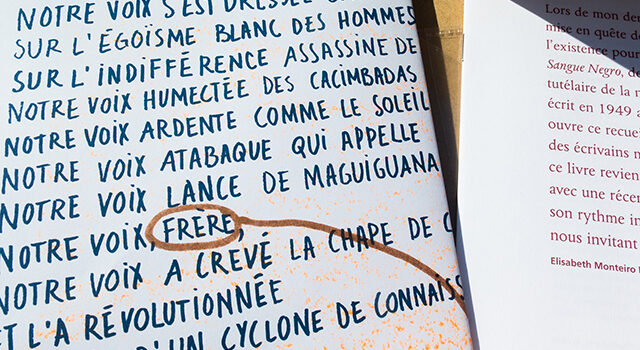 NOTRE VOIX S'EST DRESSÉE
SUR L'ÉGOÏSME BLANC DES HOMMES
SUR L'INDIFFÉRENCE ASSASSINE DE
NOTRE VOIX HUMECTÉE DES CACIMBADAS
NOTRE VOIX ARDENTE COMME LE SOLEIL
NOTRE VOIX ATABAQUE QUI APPELLE
NOTRE VOIX LANCE DE MAGUIGUANA
NOTRE VOIX, FRÈRE,
NOTRE VOIX A CREVÉ LA CHAPE DE C
ET L'A RÉVOLUTIONNÉE
D'UN CYCLONE DE CONNAISS
Lors de mon der
mise en quête d
l'existence pour
Sangue Negro, d
tutélaire de la n
écrit en 1949 a
ouvre ce recue
des écrivains n
ce livre revien
avec une récen
son rythme in
nous invitant
Elisabeth Monteiro